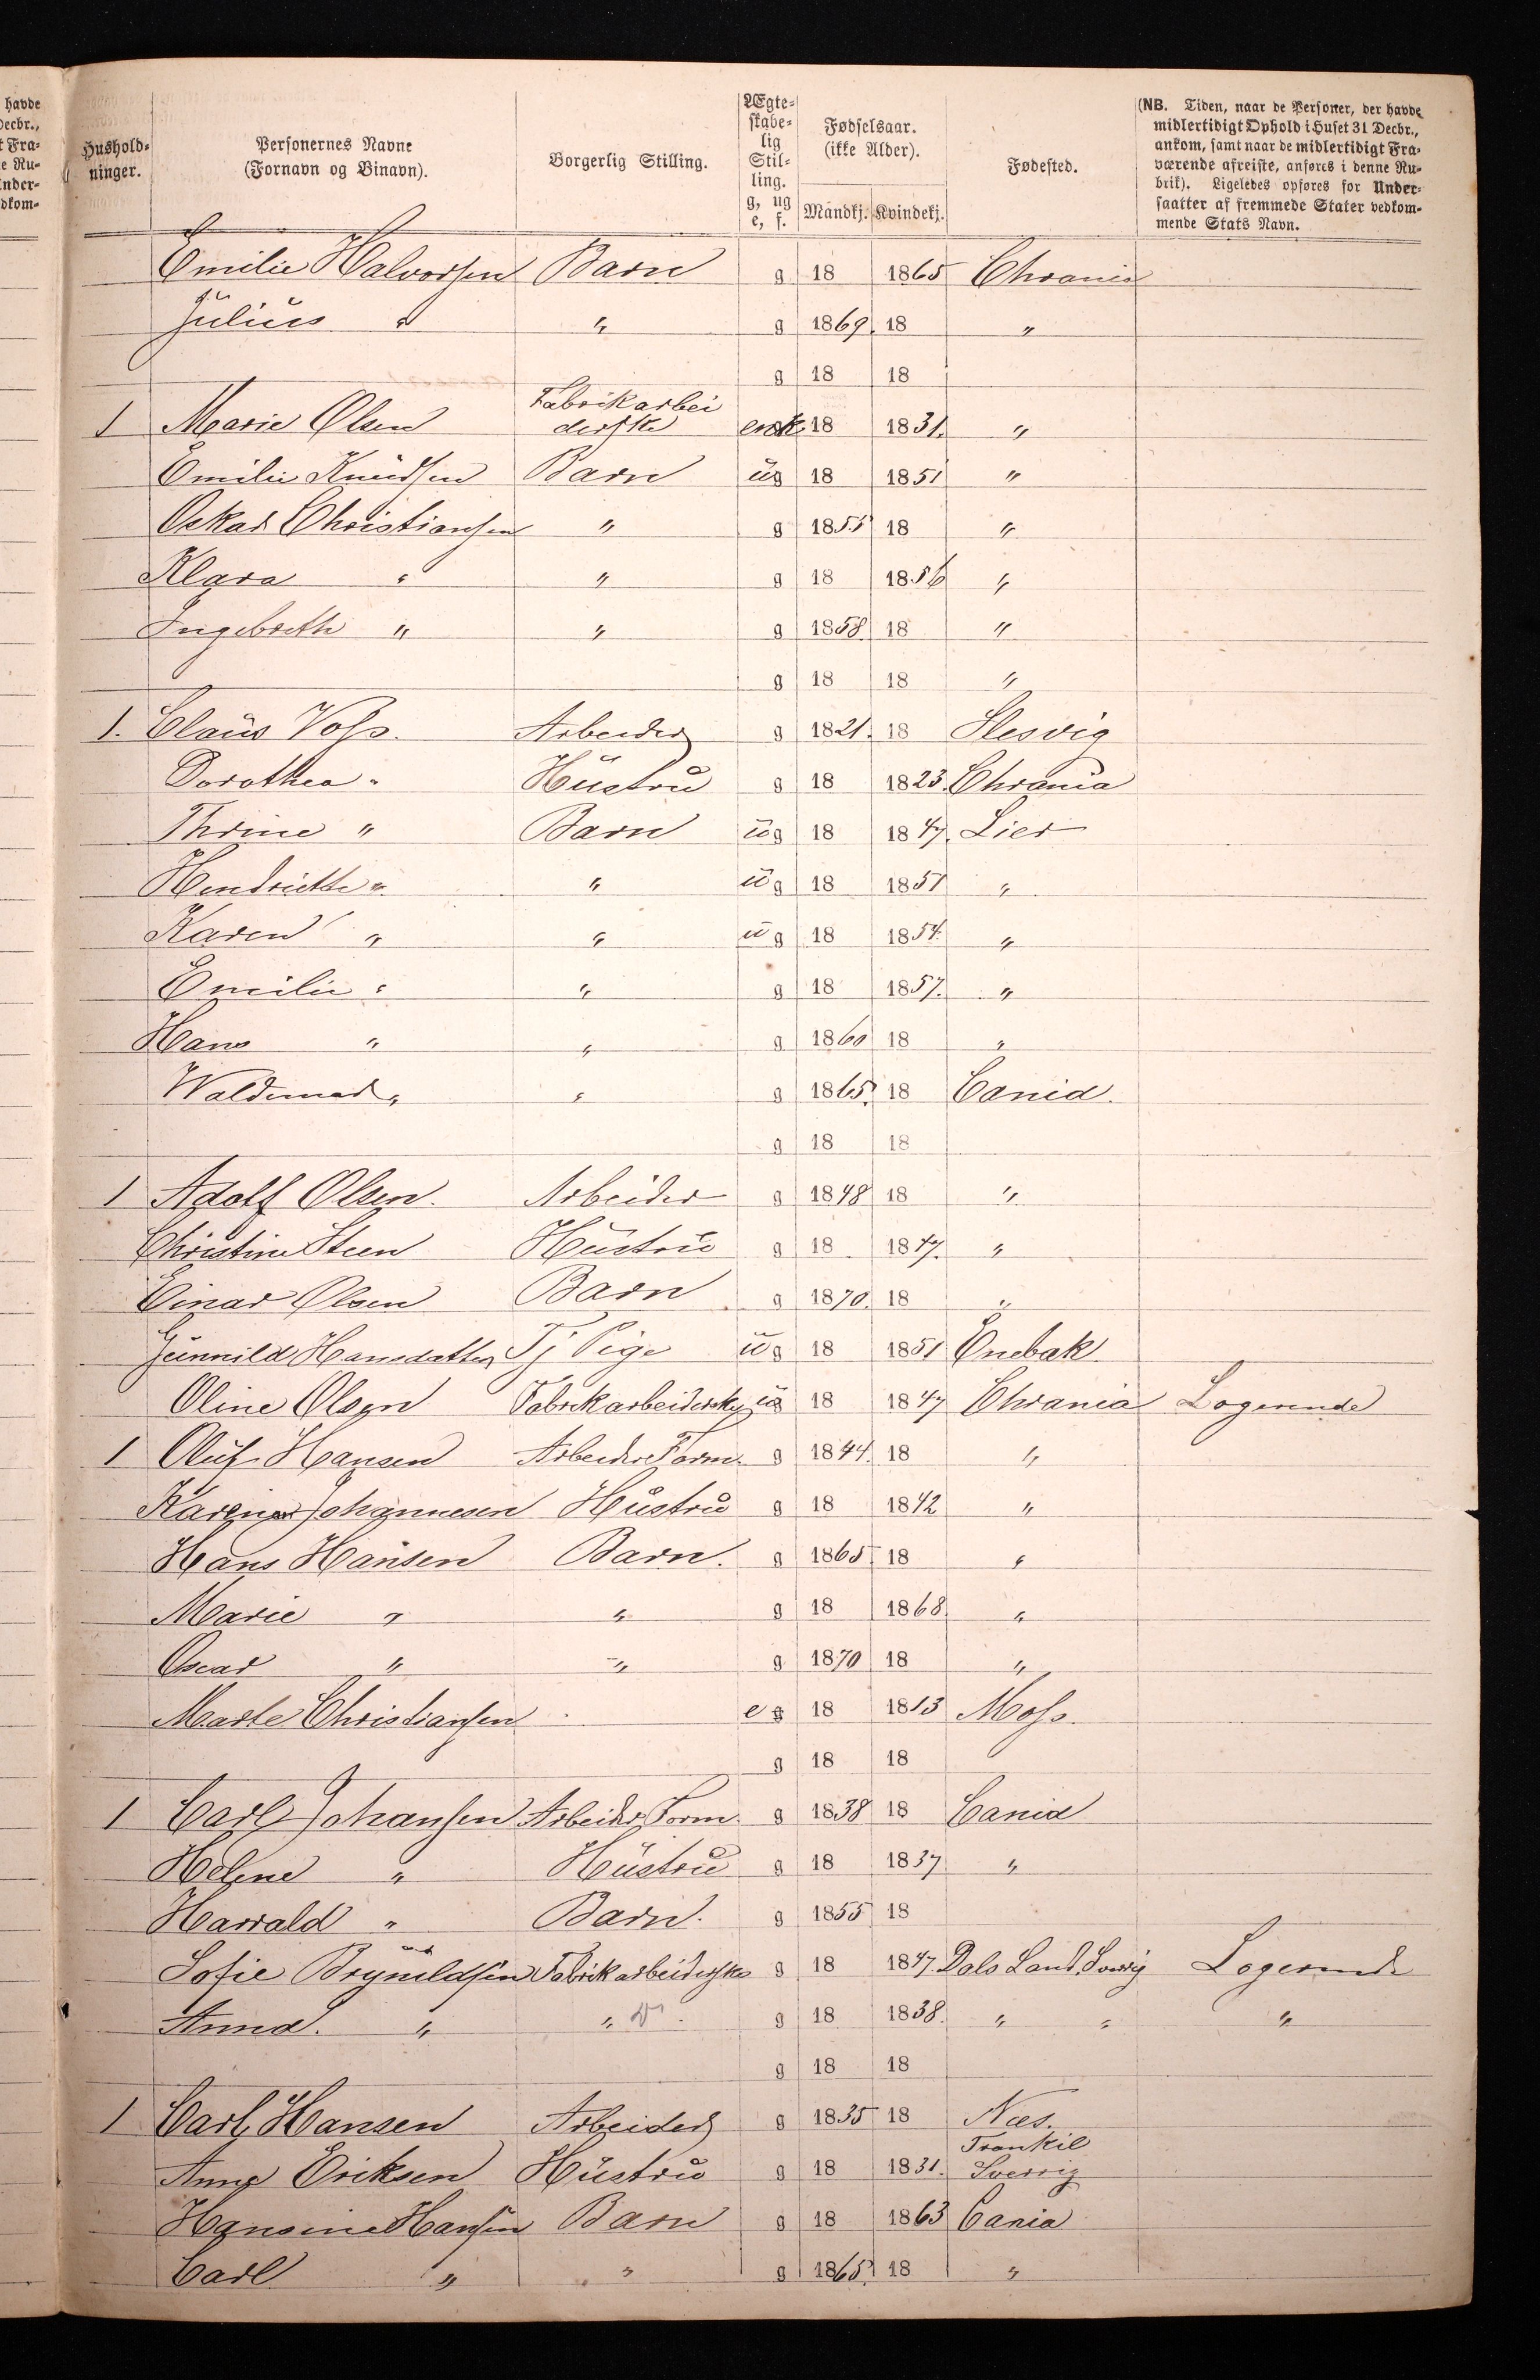 havde
Decbr.,
t Fra=
e Ru=
Inder=
dkom=
Hushold=
ninger.
Personernes Navne
(Fornavn og Binavn).
Borgerlig Stilling.
Ægte=
skabe=
lig
Stil=
ling.
g, ug
e, f.
Fødselsaar.
(ikke Alder).
Mandkj. Kvindekj.
Fødested.
(NB. Tiden, naar de Personer, der havde
midlertidigt Ophold i Huset 31 Decbr.,
ankom, samt naar de midlertidigt Fra=
værende afreiste, anføres i denne Ru=
brik). Ligeledes opføres for Under=
saatter af fremmede Stater vedkom=
mende Stats Navn.
Emilie Halvorsen Barn g 18 1865 Chrania
Julius " " g 1869. 18 "
g 18 18
1 Marie Olsen Fabrikarbei
derske enk. 18 1831. "
Emilie Knudsen Barn ug 18 1851 "
Oskar Christiansen " g 1855 18 "
Klara " " g 18 1856 "
Ingebreth " " g 1858. 18 "
g 18 18 "
1. Claus Voss. Arbeider g 1821. 18 Slesvig
Dorothea " Hustru g 18 1823. Chrania
Thrine " Barn ug 18 1847. Lier
Hendriette " " ug 18 1851 "
Karen " " ug 18 1854. "
Emilie " " g 18 1857. "
Hans " " g 1860 18 "
Waldemar " " g 1865. 18 Cania.
g 18 18
1 Adolf Olsen. Arbeider g 1848 18 "
Christine Steen Hustru g 18 1847. "
Einar Olsen Barn g 1870. 18 "
Gunnild Hansdatter Tj Pige ug 18 1851 Enebak.
Oline Olsen Fabrikarbeiderske ug 18 1847 Chrania Logerende
1 Oluf Hansen Arbeider Form. g 1844. 18 "
Karen Johannesen Hustru g 18 1842 "
Hans Hansen Barn. g 1865 18 "
Marie " " g 18 1868. "
Oscar " " g 1870 18 "
Marte Christiansen e g 18 1813 Moss.
g 18 18
1 Carl Johansen Arbeider Form. g 1838 18 Cania
Helene " Hustru g 18 1837 "
Harrald " Barn. g 1855 18
Sofie Brynildsen Fabrikarbeiderske g 18 1847. Dals Land, Sverig Logerende
Anna. " " g 18 1838. " " "
g 18 18
1 Carl Hansen Arbeider g 1835 18 Næs.
Anne Eriksen Hustru g 18 1831. Trankil
Sverrig
Hansine Hansen Barn g 18 1863 Cania
Carl " " g 1865. 18 "